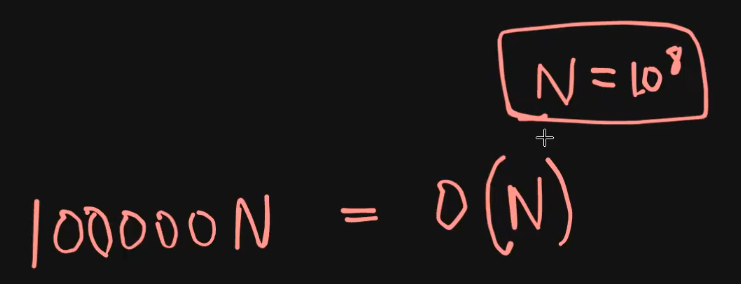 N = 10⁸
100000N = O(N)